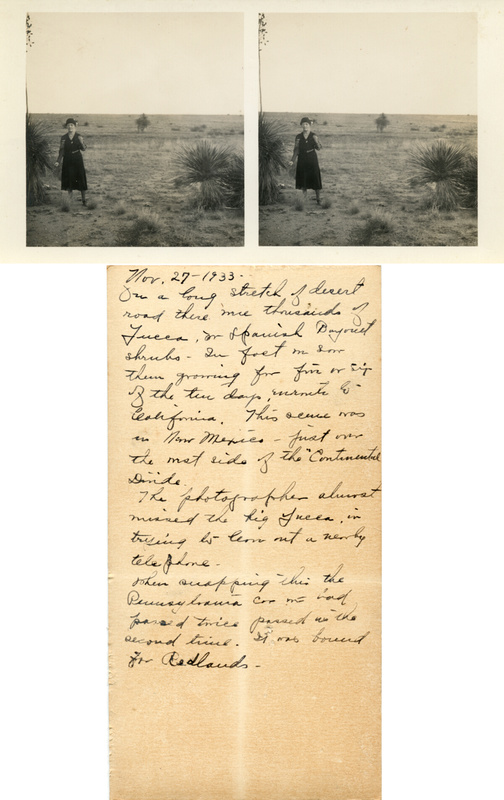 Nov. 27-1933-
On a long stretch of desert
road there were thousands of
Yucca, or Spanish Bayonet
shrubs - In fact we saw
them growing for five or six
of the ten days enroute to
California. This scene was
in New Mexico - just over
the west side of the "Continental
Divide.
The photographer almost
missed the big Yucca, in
trying to leave out a nearby
telephone.
When snapping this the
Pennsylvania car we had
passed twice passed us the
second time. It was bound
for Redlands -